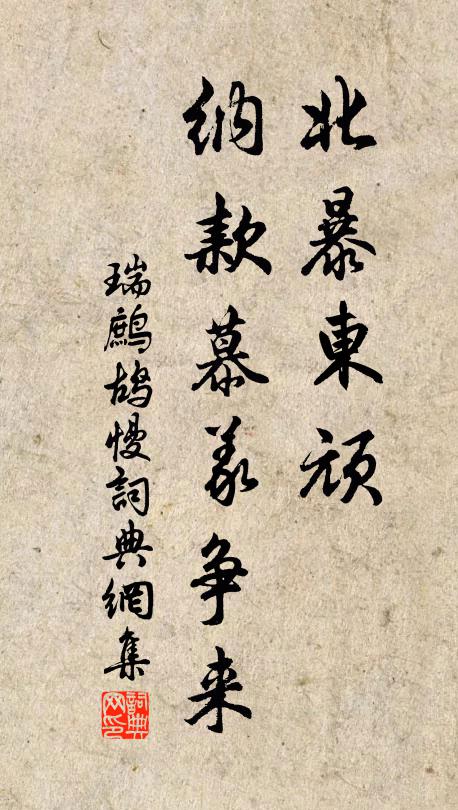 北暴東頑
納款慕義争来
瑞鷓鴣慢詞典網集
詞典网印